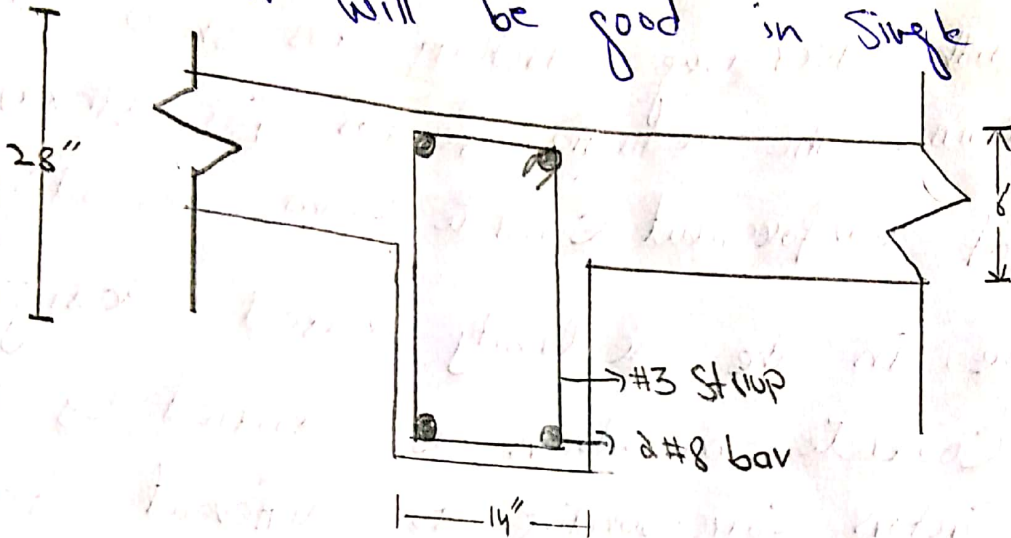 will be good in Single
28"
6"
#3 Striup
2#8 bar
14"